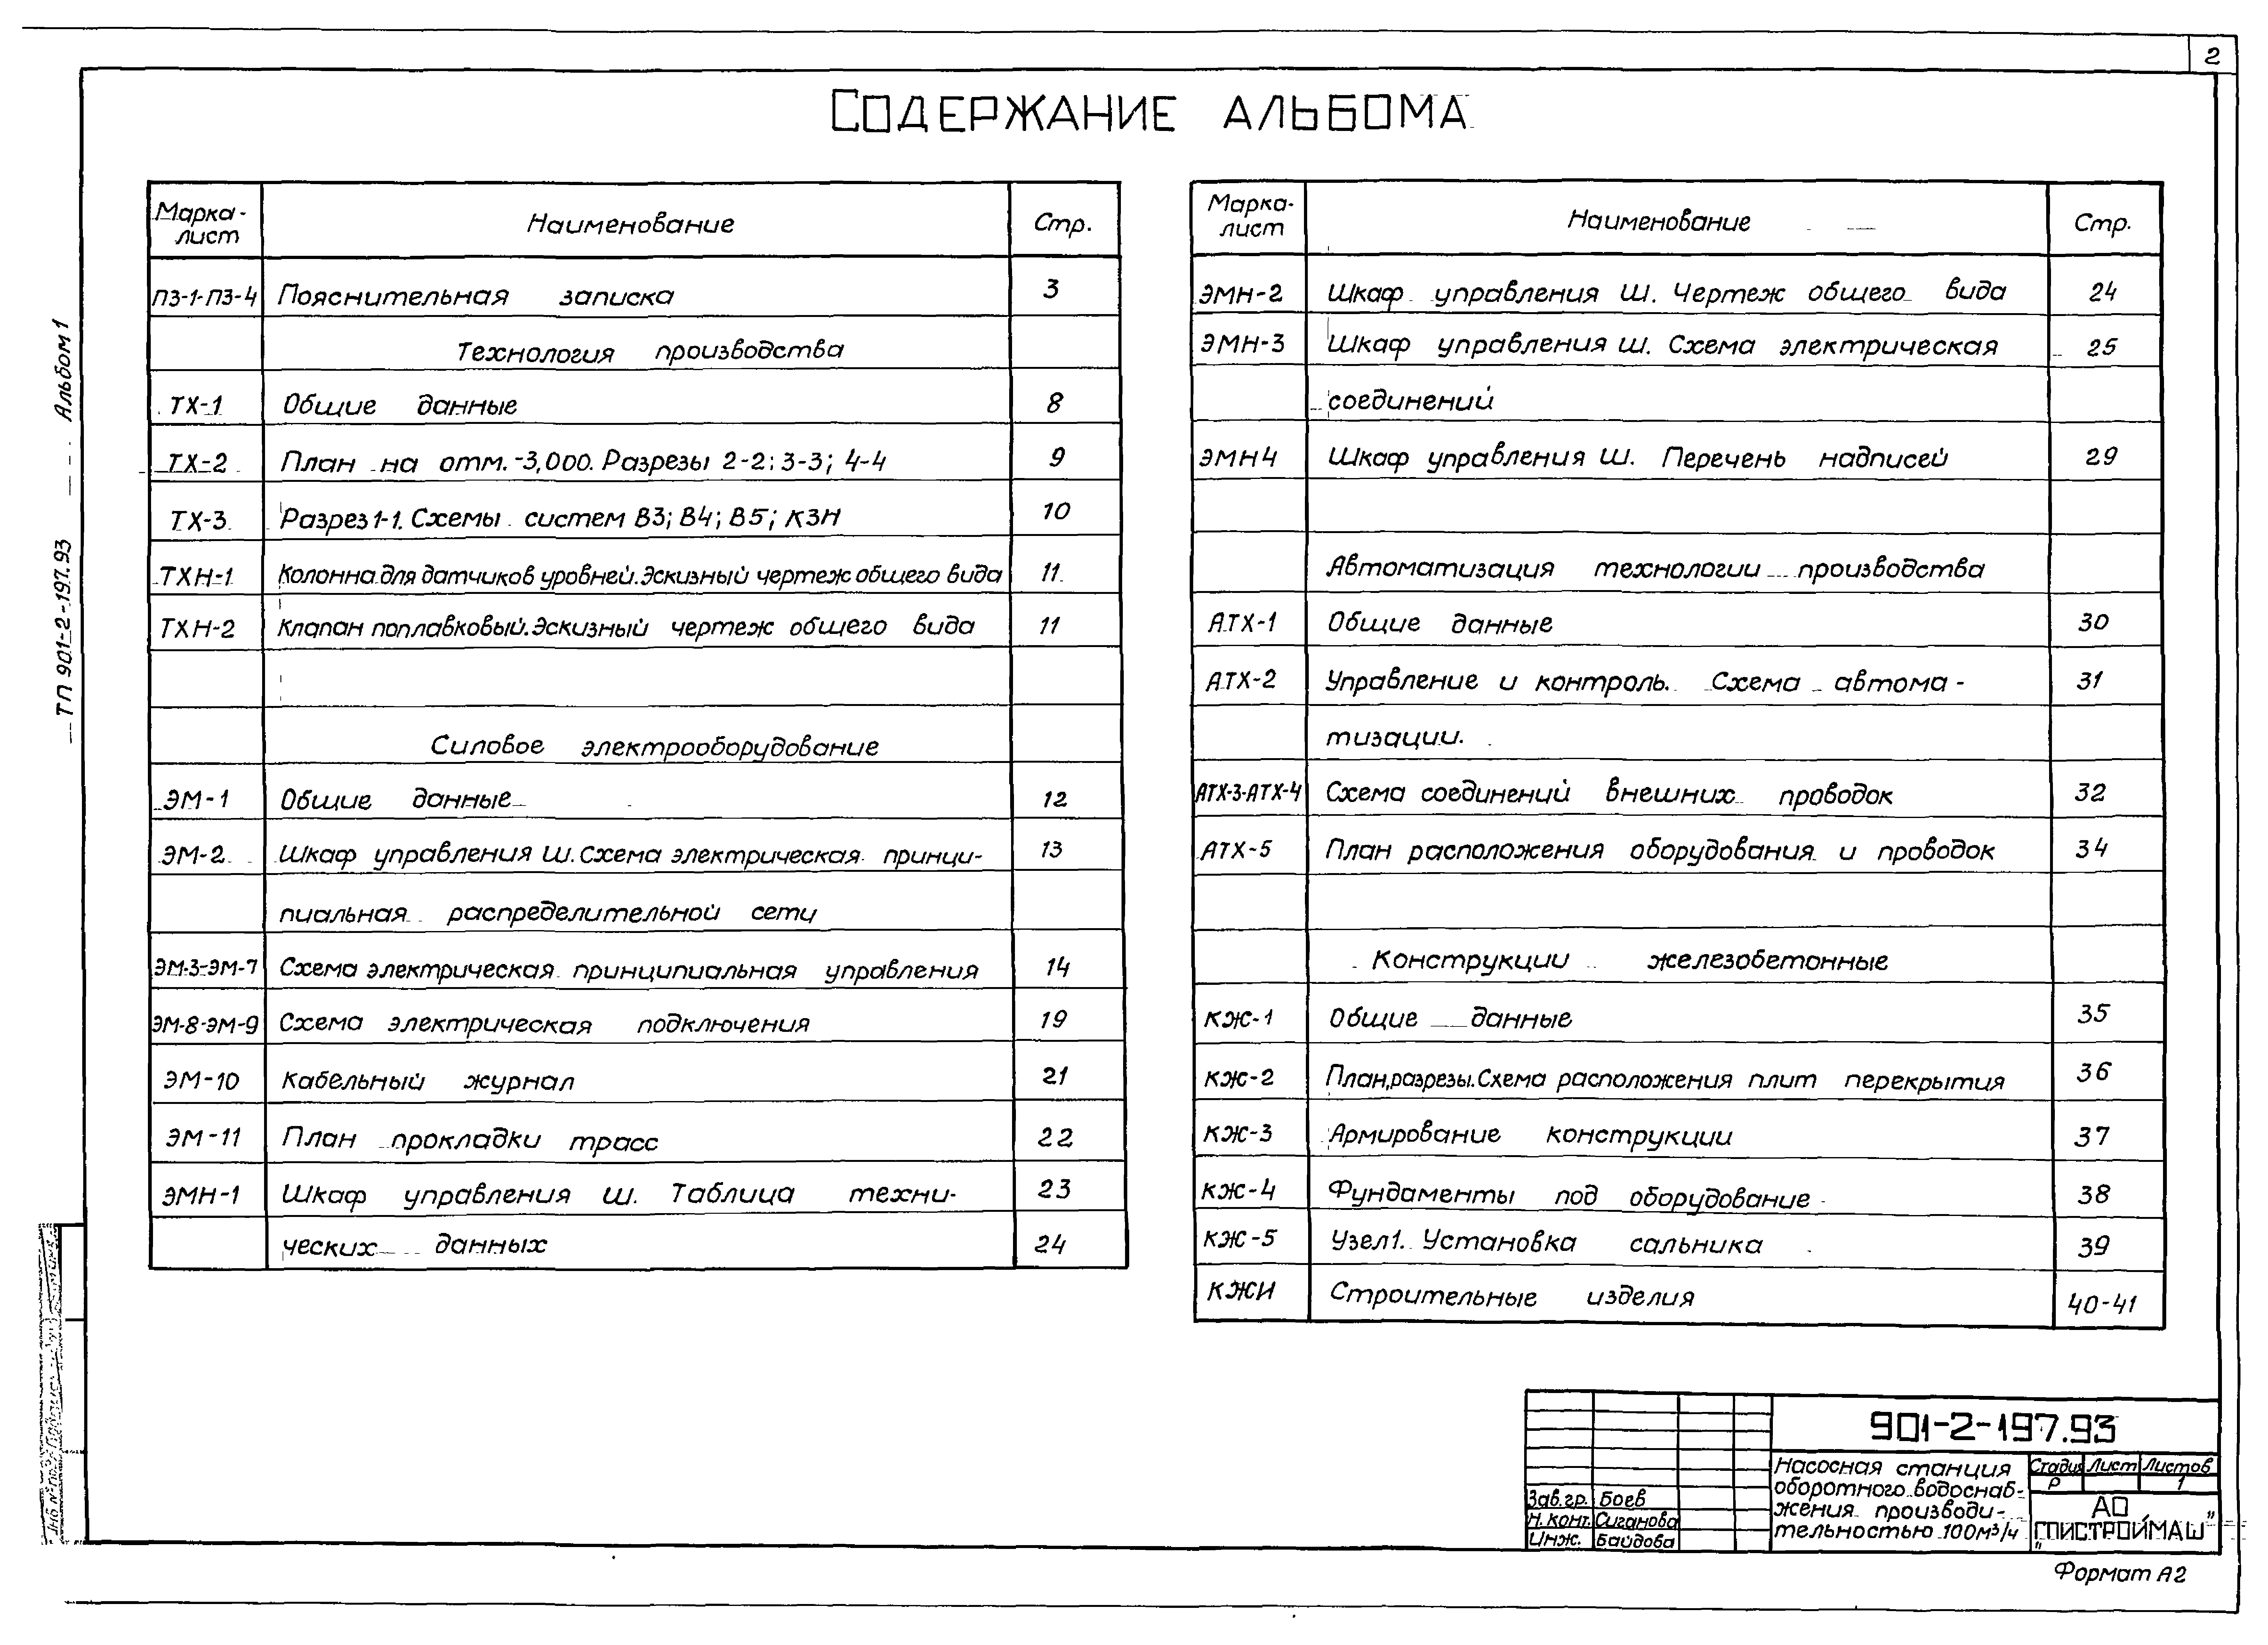 2
СОДЕРЖАНИЕ АЛЬБОМА
Марка-лист Наименование Стр.
ПЗ-1-ПЗ-4 Пояснительная записка 3
Технология производства
ТХ-1 Общие данные 8
ТХ-2 План на отм. -3,000. Разрезы 2-2; 3-3; 4-4 9
ТХ-3 Разрез 1-1. Схемы систем В3; В4; В5; К3Н 10
ТХН-1 Колонна для датчиков уровней. Эскизный чертеж общего вида 11
ТХН-2 Клапан поплавковый. Эскизный чертеж общего вида 11
Силовое электрооборудование
ЭМ-1 Общие данные 12
ЭМ-2 Шкаф управления Ш. Схема электрическая принци- 13
пиальная распределительной сети
ЭМ-3-ЭМ-7 Схема электрическая принципиальная управления 14
ЭМ-8-ЭМ-9 Схема электрическая подключения 19
ЭМ-10 Кабельный журнал 21
ЭМ-11 План прокладки трасс 22
ЭМН-1 Шкаф управления Ш. Таблица техни- 23
ческих данных 24
Марка-лист Наименование Стр.
ЭМН-2 Шкаф управления Ш. Чертеж общего вида 24
ЭМН-3 Шкаф управления Ш. Схема электрическая 25
соединений
ЭМН4 Шкаф управления Ш. Перечень надписей 29
Автоматизация технологии производства
АТХ-1 Общие данные 30
АТХ-2 Управление и контроль. Схема автома- 31
тизации.
АТХ-3-АТХ-4 Схема соединений внешних проводок 32
АТХ-5 План расположения оборудования и проводок 34
Конструкции железобетонные
КЖ-1 Общие данные 35
КЖ-2 План, разрезы. Схема расположения плит перекрытия 36
КЖ-3 Армирование конструкции 37
КЖ-4 Фундаменты под оборудование 38
КЖ-5 Узел 1. Установка сальника 39
КЖИ Строительные изделия 40-41
ТП 901-2-197.93 Альбом 1
901-2-197.93
Насосная станция
оборотного водоснаб-
жения производи-
тельностью 100м³/ч
Стадия Лист Листов
Р 1
АО
"ГПИСТРОЙМАШ"
Зав.гр. Боев
Н. конт. Сиганова
Инж. Байдова
Формат А2